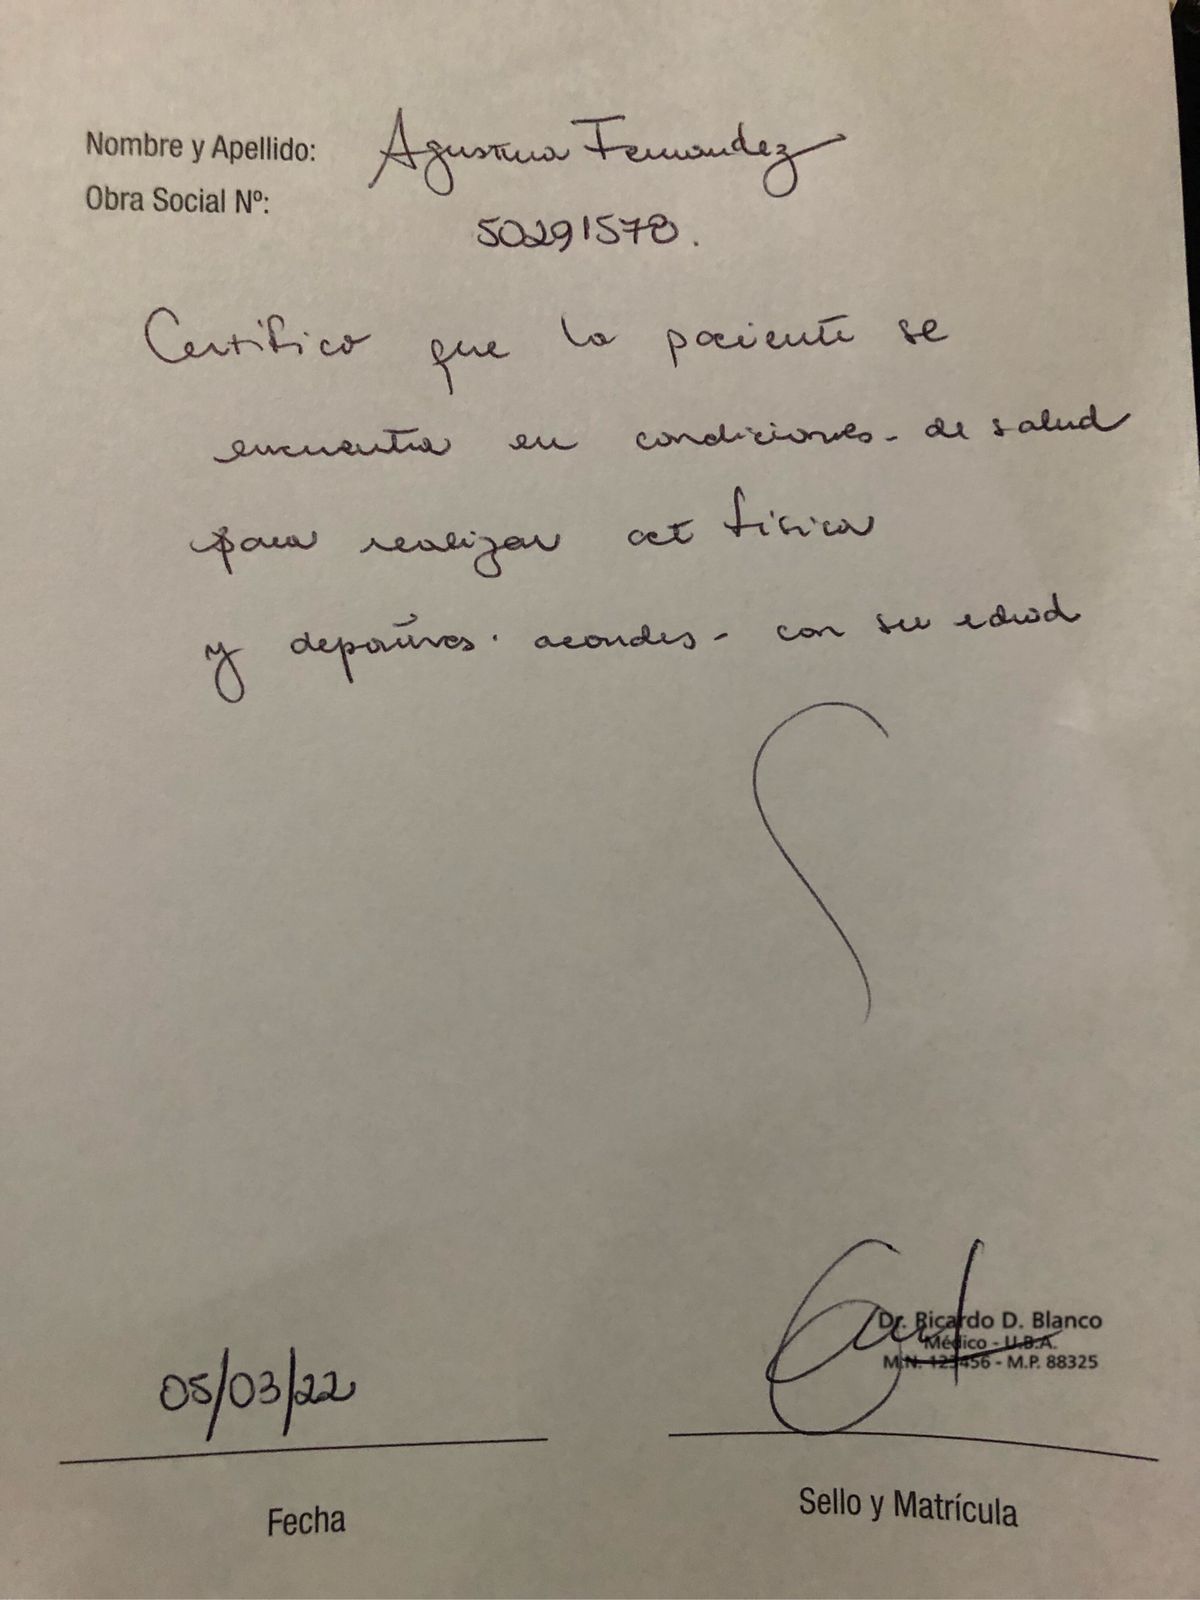 Nombre y Apellido: Agustina Fernandez
Obra Social Nº:
50291578.
Certifico que la paciente se
encuentra en condiciones - de salud
para realizar act física
y deportivas. acordes - con su edad
Dr. Ricardo D. Blanco
Médico - U.B.A.
M.N. 123456 - M.P. 88325
05/03/22
Fecha
Sello y Matrícula